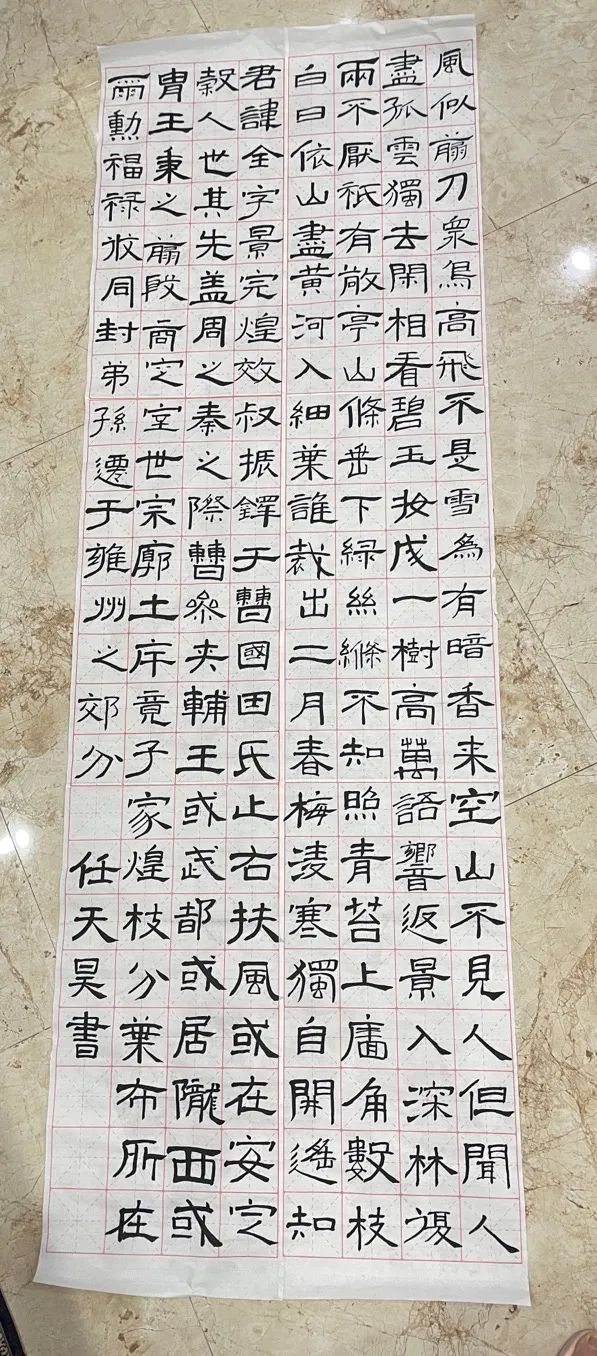 風似翦刀衆鳥高飛不是雪為有暗香来空山不見人但聞人
盡孤雲獨去閑相看碧玉妝成一樹高萬語響返景入深林復
兩不厭祇有敬亭山條垂下緑絲縧不知照青苔上廧角數枝
白日依山盡黄河入細葉誰裁出二月春梅凌寒獨自開遙知
君諱全字景完煌效叔振鐸于曹國因氏止右扶風或在安定
穀人世其先盖周之秦之際曹参夾輔王或武都或居隴西或
胄王秉之翦殷商定室世宗廓土斥竟子家煌枝分葉布所在
爾勳福禄攸同封弟孫遷于雍州之郊分
任天昊書